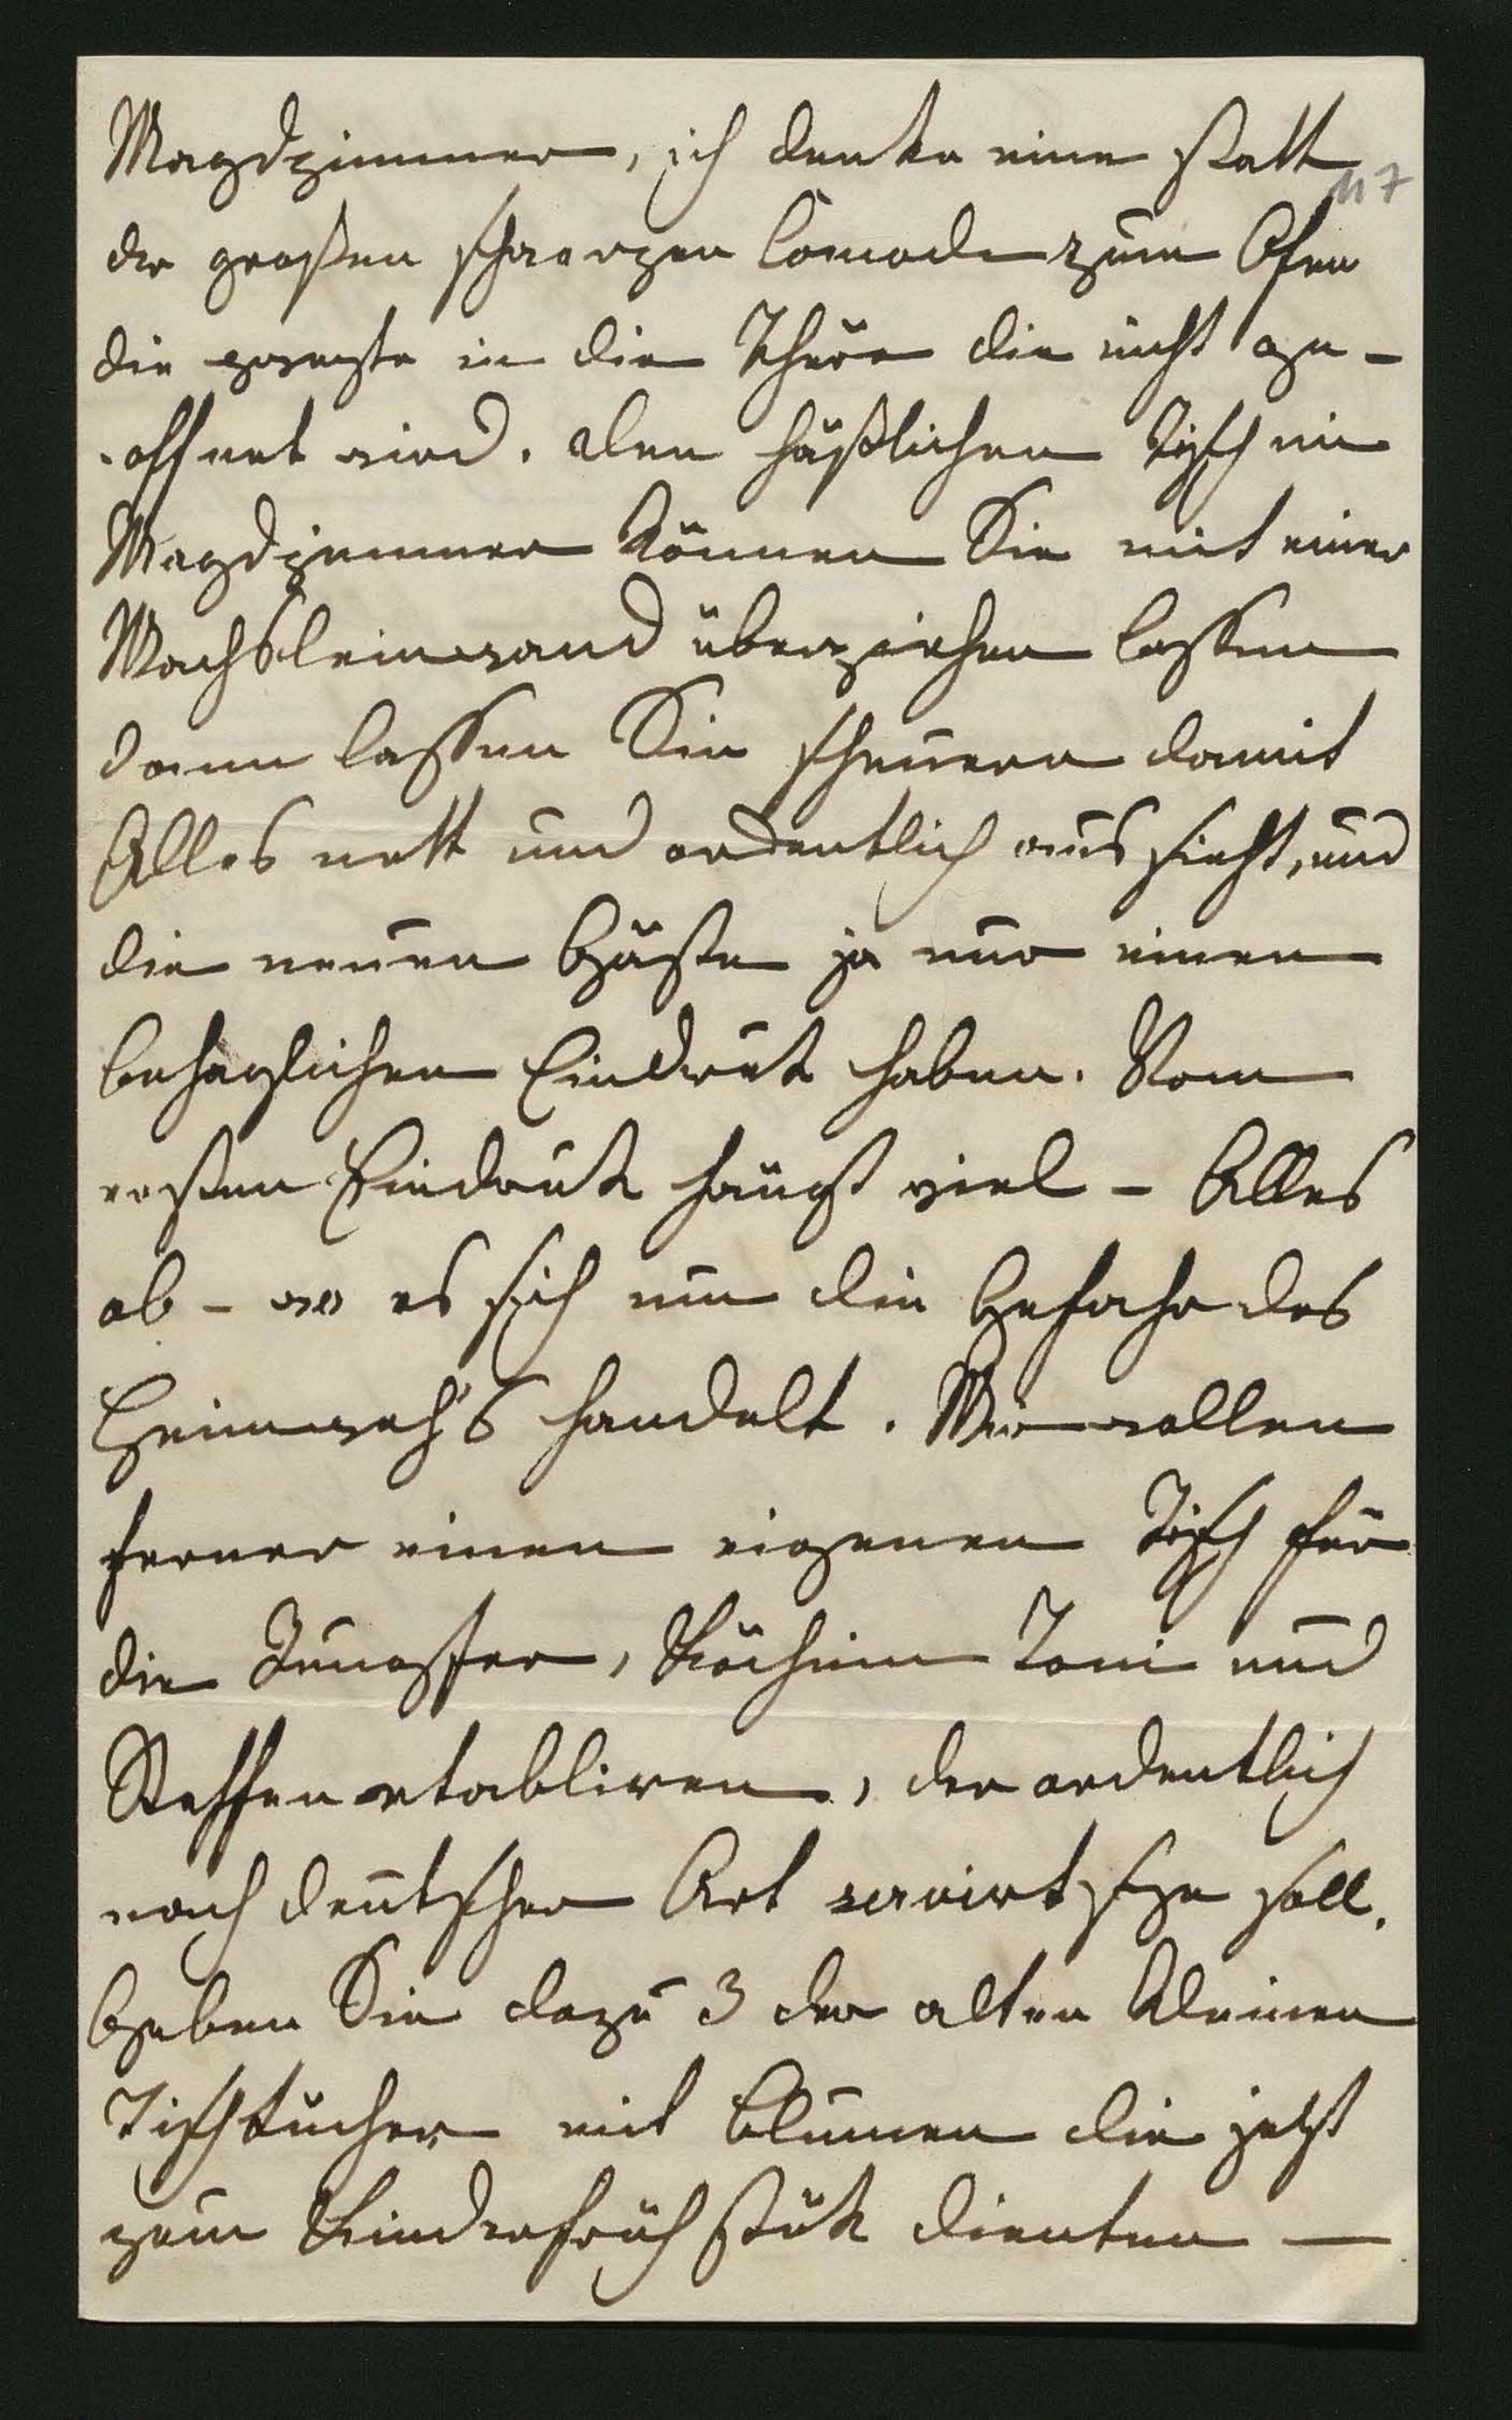 Magdzimmer, ich denke eine statt
117
der großen schwarzen Comode zum Ofen
die zweyte in die Thüre die nicht ge-
-öffnet wird. Den häßlichen Tisch im
Magdzimmer können Sie mit einer
Wachsleinwand überziehen lassen
dann lassen Sie scheuern damit
Alles nett und ordentlich aussieht, und
die neuen Gäste ja nur einen
behaglichen Eindruk haben. Vom
ersten Eindruk hängt viel - Alles
ab - wo es sich um die Gefahr des
Heimweh's handelt. Wir wollen
ferner einen eigenen Tisch für
die Jungfer, Köchin Toni und
Steffen etabliren, der ordentlich
nach deutscher Art servirt seyn soll.
Geben Sie dazu 3 der alten kleinen
Tischtücher mit Blumen die jetzt
zum Kinderfrühstük dienten —